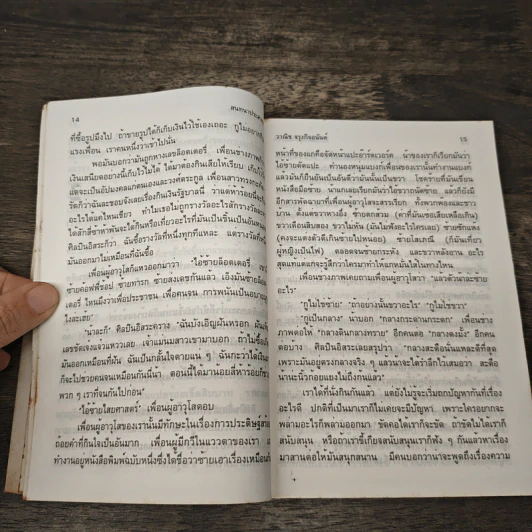 14
สนทนาประสา
ที่ซื้อรูปมึงไป ถ้าขายรูปได้ก็เก็บเงินไว้ใช้เองเถอะ กูไม่อยาก
แรงเพื่อน เราคนหนึ่งว่าเข้าไปนั่น
พอมันบอกว่ามันถูกหางเลขล็อตเตอรี่ เพื่อนช่างภาพก็
เงินสนิยดอย่างนี้เก็บไว้ไม่ได้ ได้มาต้องกินเสียให้เรียบ
แต่จะเป็นอัปมงคลแก่ตนเองและวงศ์ตระกูล เพื่อนสาว
รัดก็ว่าฉันละชอบจังเลยเรื่องกินเงินรัฐบาลนี่ ว่าแต่ห้าร้อยนี่จะ
อะไรได้แค่ไหนเชียว ทำไมเราไม่ถูกรางวัลอะไรสักรางวัล
ได้สักสี่ห้าหาพันจะได้กินหรือเที่ยวอะไรที่มันเป็นชิ้นเป็นอัน
ศิลปินอิสระก็ว่า ฉันซื้อรางวัลที่หนึ่งทุกทีแหละ แต่รางวัลที่
มันออกมาไม่เหมือนที่ฉันซื้อ
เพื่อนผู้อาวุโสก็แหวออกมาว่า 'ไอ้ซ้ายล็อตเตอรี่
ซ้ายคัฟฟี่ช็อป ซ้ายทารก ซ้ายสงเดชกันแล้ว เอ็งมันซ้าย
เตอรี่ ไหนมึงว่าเพื่อประชาชน เพื่อคนจน การพนันเป็นอบาย
ไงละเฮย'
'น้าละก็' ศิลปินอิสระคราง 'ฉันบังเอิญฝันหรอก
เลขชัดเจ๋งแจ๋วแหววเลย เจ้าแม่นมสาวเขามาบอก ถ้าไม่ซื้อ
มันออกเหมือนที่ฝัน ฉันเป็นกลั้นใจตายแน ๆ ฉันกะว่าได้เงิน
ก็จะไปช่วยคนจนเหมือนกันนี่น้า ตอนนี้ได้มาน้อยสี่ห้าร้อย
พวก ๆ เราที่จนกันไปก่อน'
'ไอ้ซ้ายไสยศาสตร์' เพื่อนผู้อาวุโสตอบ
เพื่อนผู้อาวุโสของเรานั้นมีทักษะในเรื่องการประดิษฐ์
ถ้อยคำที่กินใจเป็นอันมาก เพื่อนผู้มีกวีในแววตาของเรา
ทำงานอยู่หนังสือพิมพ์ฉบับหนึ่งซึ่งได้ชื่อว่าซ้ายเอาเรื่องเหมือน
วาณิช จรุงกิจอนันต์
15
หน้าที่ของแกคือจัดหน้าแปะอ๊าร์ตเวอร์ค น้าของเราก็เรียกมันว่า
ไอ้ซ้ายตัดแปะ ทำเอาเพื่อนหนุ่มแบงก์ของเพื่อนเรานั้นทำงานแบงก์
แล้วมันก็ยืนยันเป็นอันดีว่ามันนั้นเป็นขวา โชคร้ายที่มันเขียน
หนังสือมือซ้าย น้าแกเลยเรียกมันว่าไอ้ขวาถนัดซ้าย แล้วก็ยังมี
อีกสารพัดฉายาที่เพื่อนผู้อาวุโสจะสรรเรียก ทั้งพวกพ้องและชาว
บ้าน ตั้งแต่ขวาหางอึ่ง ซ้ายตกสวม (คาที่มันขอเสียเหลือเกิน)
ขวาเดือนสิบสอง ขวาไม่หัน (มันไม่ฟังอะไรใครเลย) ซ้ายซักแห้ง
(คงจะแต่งตัวดีเกินซ้ายไปหน่อย) ซ้ายโสเภณี (ก็มันเที่ยว
ผู้หญิงเป็นไฟ) ตลอดจนซ้ายกระทั่ง และขวาหลังยาน อะไร
สุดแท้แต่แกจะรู้สึกว่าใครมาทำให้แกหมั่นไส้ในทางไหน
เพื่อนช่างภาพเคยถามเพื่อนผู้อาวุโสว่า 'แล้วตัวน้าล่ะซ้าย
อะไร'
'กูไม่ใช่ซ้าย' 'ถ้าอย่างนั้นขวาอะไร' 'กูไม่ใช่ขวา'
'กูเป็นกลาง' น้าบอก 'กลางกระดานกระดก' เพื่อนช่าง
ภาพต่อให้ 'กลางดินกลางทราย' อีกคนต่อ 'กลางดงมั้ง' อีกคน
ต่อบ้าง ศิลปินอิสระเลยสรุปว่า 'กลางสะดือนั่นแหละดีที่สุด
เพราะมันอยู่ตรงกลางจริง ๆ แล้วน้าจะได้รำลึกไว้เสมอว่า สะดือ
น้าน่ะนิ้วก้อยแยงไม่ถึงก้นแล้ว'
เราได้ที่นั่งกินกันแล้ว แต่ยังไม่รู้จะเริ่มถกปัญหากันที่เรื่อง
อะไรดี ปกติที่เป็นมาเราก็ไม่เคยจะมีปัญหา เพราะใครอยากจะ
พล่ามอะไรก็พล่ามออกมา ขัดคอได้เราก็จะขัด ถ้าขัดไม่ได้เราก็
สนับสนุน หรือถ้าเราขี้เกียจสนับสนุนเราก็ฟัง ๆ กันแล้วหาเรื่อง
มาสานต่อให้มันสนุกสนาน มีคนบอกว่าน่าจะพูดถึงเรื่องความ